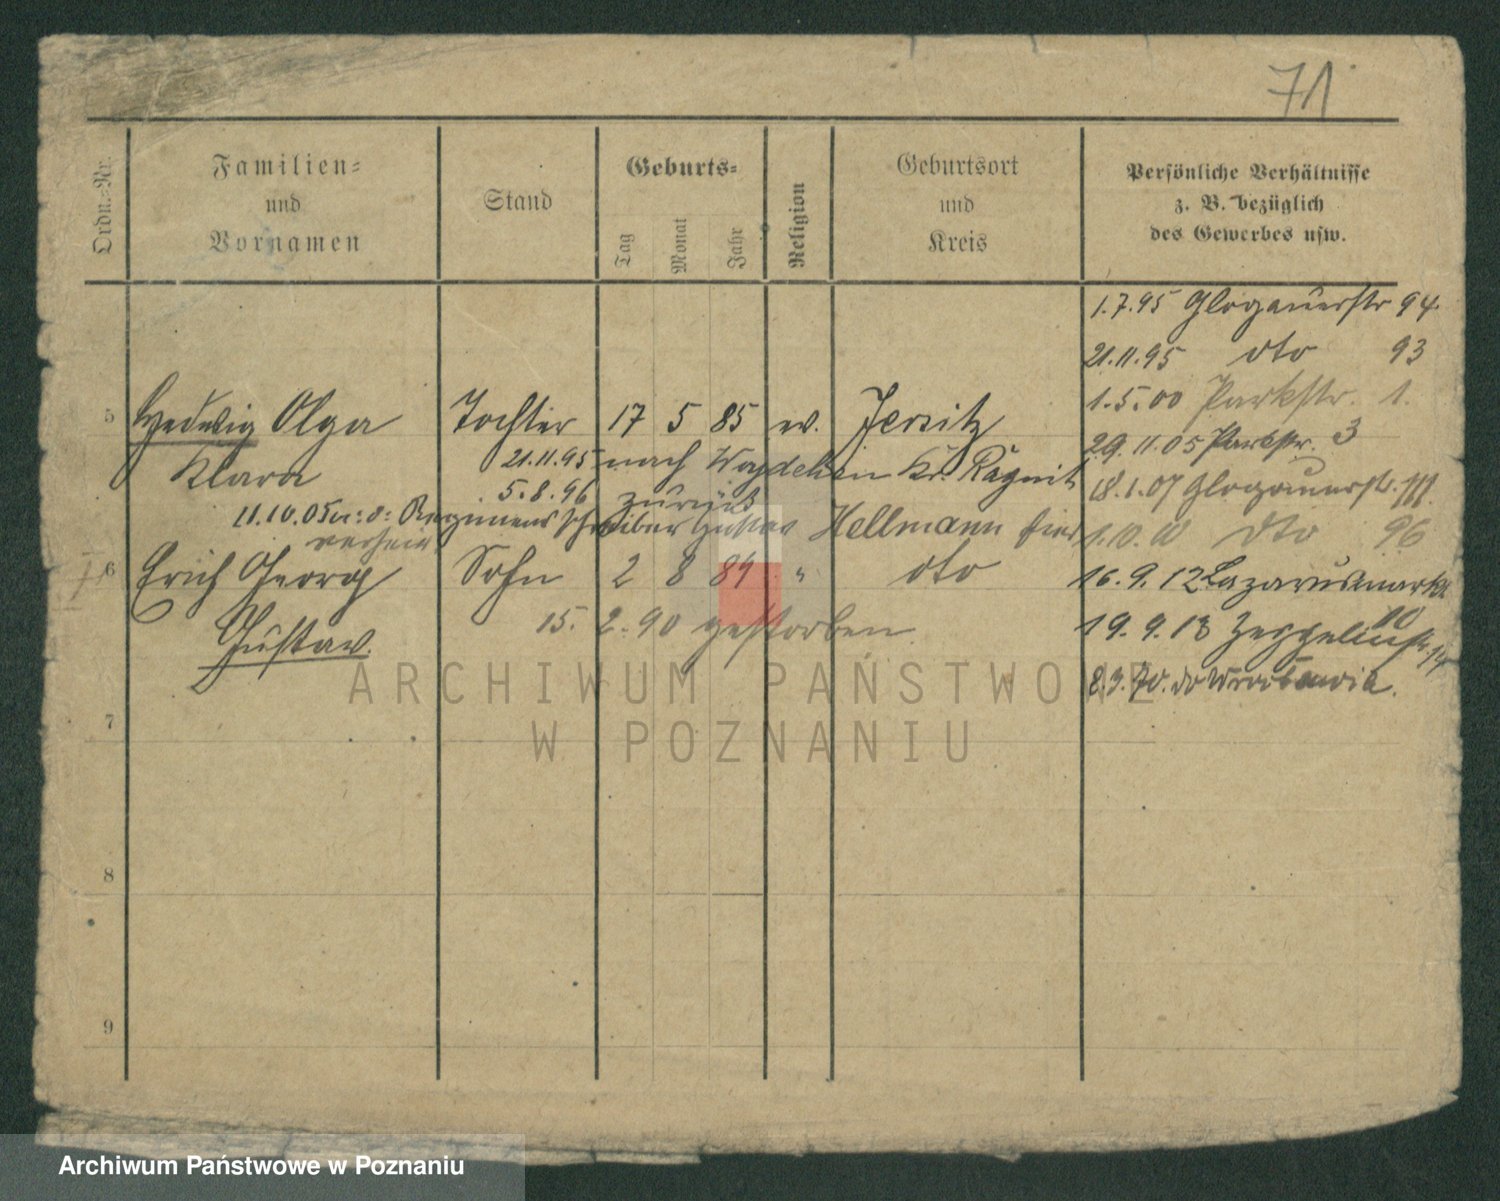 71
Ordn.-Nr.
Familien-
und
Vornamen
Stand
Geburts-
Tag
Monat
Jahr
Religion
Geburtsort
und
Kreis
Persönliche Verhältnisse
z. B. bezüglich
des Gewerbes usw.
1.7.95 Glogauerstr 94.
21.11.95 dto 93
1.5.00 Parkstr. 1.
5 Hedwig Olga Tochter 17 5 85 ev. Jersitz
29.11.05 Parkstr. 3
Klara 21.11.95 nach Kr. Ragnit
18.1.07 Glogauerstr. 111
5.8.96 zurück
11.10.05 Regimentsschreiber Gustav Hellmann hier
verheir
1.10.10 dto 96
6 Erich Georg Sohn 2 8 89 " dto
16.9.12 Lazarusmarkt
10
Gustav 15.2.90 gestorben
19.9.13 Zeppelinstr. 14
8.9.20. do Wrocławia.
7
8
9
ARCHIWUM PAŃSTWOWE
W POZNANIU
Archiwum Państwowe w Poznaniu